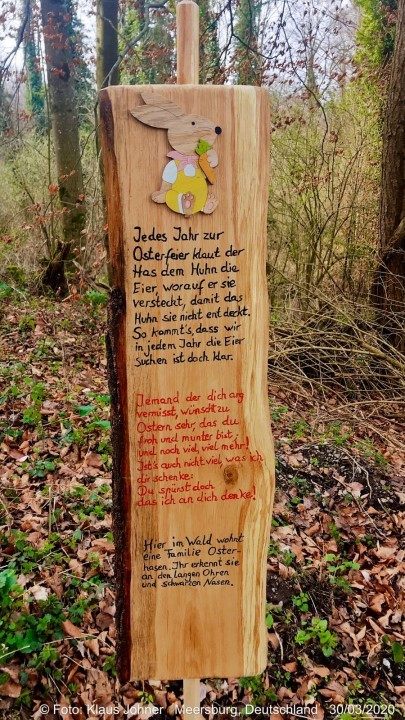 Jedes Jahr zur
Osterfeier klaut der
Has dem Huhn die
Eier, worauf er sie
versteckt, damit das
Huhn sie nicht entdeckt.
So kommt's, dass wir
in jedem Jahr die Eier
Suchen ist doch klar.
Jemand der dich arg
vermisst, wünscht zu
Ostern sehr, das du
froh und munter bist,
und noch viel, viel mehr!
Ist's auch nicht viel, was ich
dir schenke:
Du spürst doch
das ich an dich denke!
Hier im Wald wohnt
eine Familie Oster-
hasen. Ihr erkennt sie
an den langen Ohren
und schwarzen Nasen.
© Foto: Klaus Johner Meersburg, Deutschland 30/03/2020